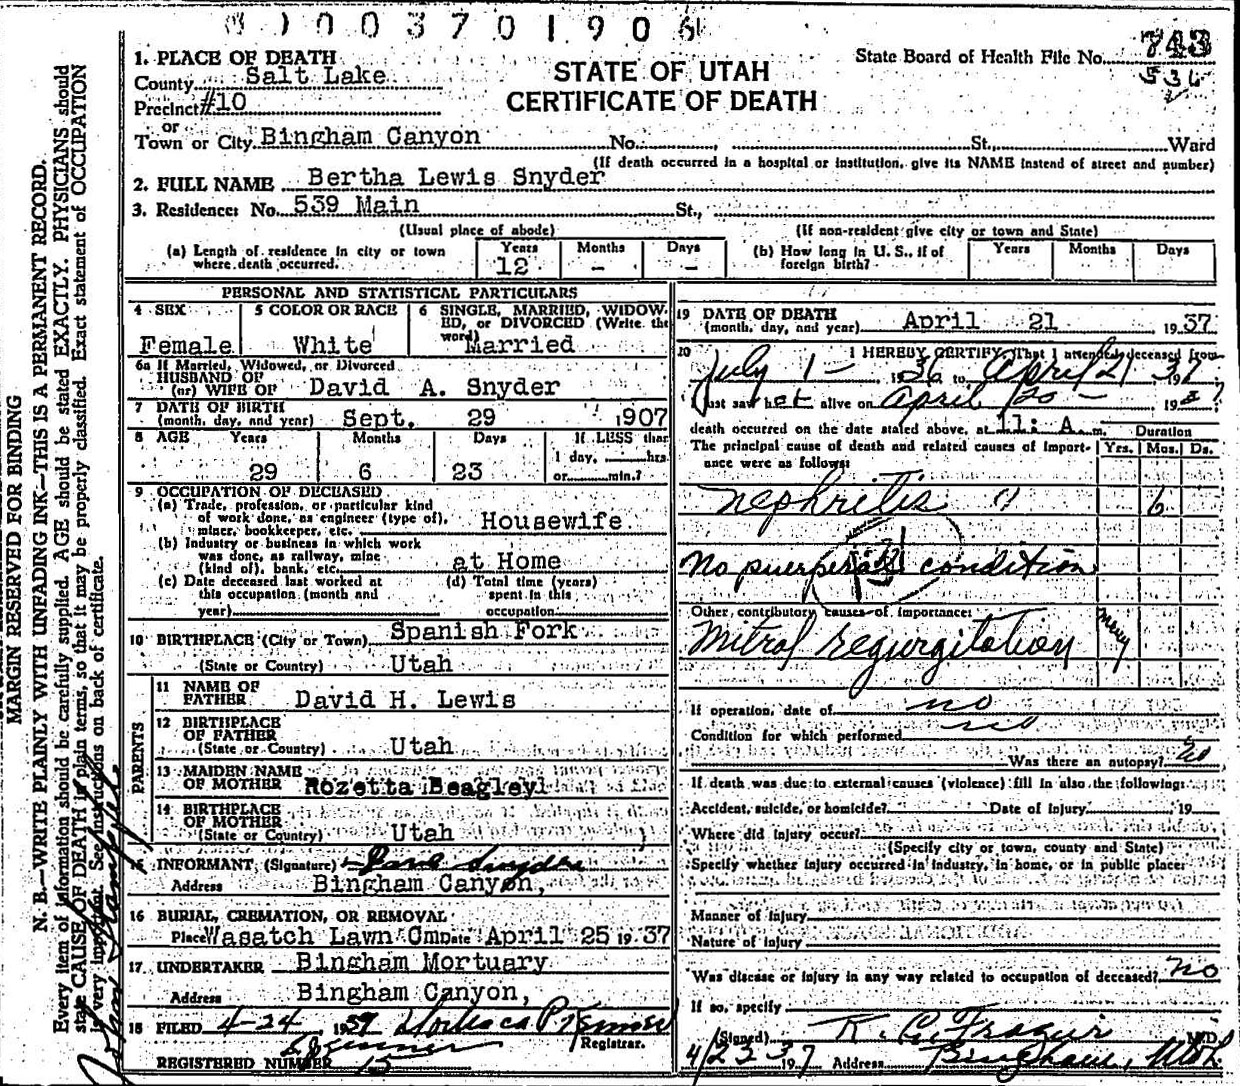 0 0 3 7 0 1 9 0 6
1. PLACE OF DEATH
County Salt Lake
Precinct #10
or
Town or City Bingham Canyon No. , St., Ward
STATE OF UTAH
CERTIFICATE OF DEATH
State Board of Health File No. 743
536
(If death occurred in a hospital or institution, give its NAME instead of street and number)
2. FULL NAME Bertha Lewis Snyder
3. Residence: No. 539 Main St.,
(Usual place of abode) (If non-resident give city or town and State)
(a) Length of residence in city or town where death occurred. Years 12 Months - Days -
(b) How long in U. S., if of foreign birth? Years Months Days
PERSONAL AND STATISTICAL PARTICULARS
4 SEX Female
5 COLOR OR RACE White
6 SINGLE, MARRIED, WIDOWED, or DIVORCED (Write the word) Married
6a If Married, Widowed, or Divorced
HUSBAND OF
(or) WIFE OF David A. Snyder
7 DATE OF BIRTH
(month, day, and year) Sept. 29 1907
8 AGE Years Months Days If LESS than
29 6 23 1 day, hrs.
or min.?
9 OCCUPATION OF DECEASED
(a) Trade, profession, or particular kind
of work done, as engineer (type of),
miner, bookkeeper, etc. Housewife
(b) Industry or business in which work
was done, as railway, mine
(kind of), bank, etc. at Home
(c) Date deceased last worked at
this occupation (month and
year)
(d) Total time (years)
spent in this
occupation
10 BIRTHPLACE (City or Town) Spanish Fork
(State or Country) Utah
PARENTS
11 NAME OF
FATHER David H. Lewis
12 BIRTHPLACE
OF FATHER
(State or Country) Utah
13 MAIDEN NAME
OF MOTHER Rozetta Beagley
14 BIRTHPLACE
OF MOTHER
(State or Country) Utah
15 INFORMANT, (Signature) Snyder
Address Bingham Canyon,
16 BURIAL, CREMATION, OR REMOVAL
Place Wasatch Lawn Cm Date April 25 19 37
17 UNDERTAKER Bingham Mortuary
Address Bingham Canyon,
18 FILED 4-24, 1937
Registrar.
REGISTERED NUMBER 15
19 DATE OF DEATH
(month, day, and year) April 21 1937
20 I HEREBY CERTIFY, That I attended deceased from
July 1 - 1936 to April 21 37
I last saw her alive on April 20 - 1937
death occurred on the date stated above, at 11: A. m. Duration
The principal cause of death and related causes of importance were as follows: Yrs. Mos. Ds.
Nephritis 6
No puerperal condition
Other contributory causes of importance:
Mitral regurgitation many
If operation, date of no
Condition for which performed no
Was there an autopsy? no
If death was due to external causes (violence) fill in also the following:
Accident, suicide, or homicide? Date of Injury 19
Where did injury occur?
(Specify city or town, county and State)
Specify whether injury occurred in industry, in home, or in public place:
Manner of injury
Nature of injury
Was disease or injury in any way related to occupation of deceased? no
If so, specify
(Signed) Frazier M.D.
4/23 1937 Address Bingham, Utah
MARGIN RESERVED FOR BINDING
N. B.—WRITE PLAINLY WITH UNFADING INK—THIS IS A PERMANENT RECORD.
Every item of information should be carefully supplied. AGE should be stated EXACTLY. PHYSICIANS should
state CAUSE OF DEATH in plain terms, so that it may be properly classified. Exact statement of OCCUPATION
is very important. See instructions on back of certificate.